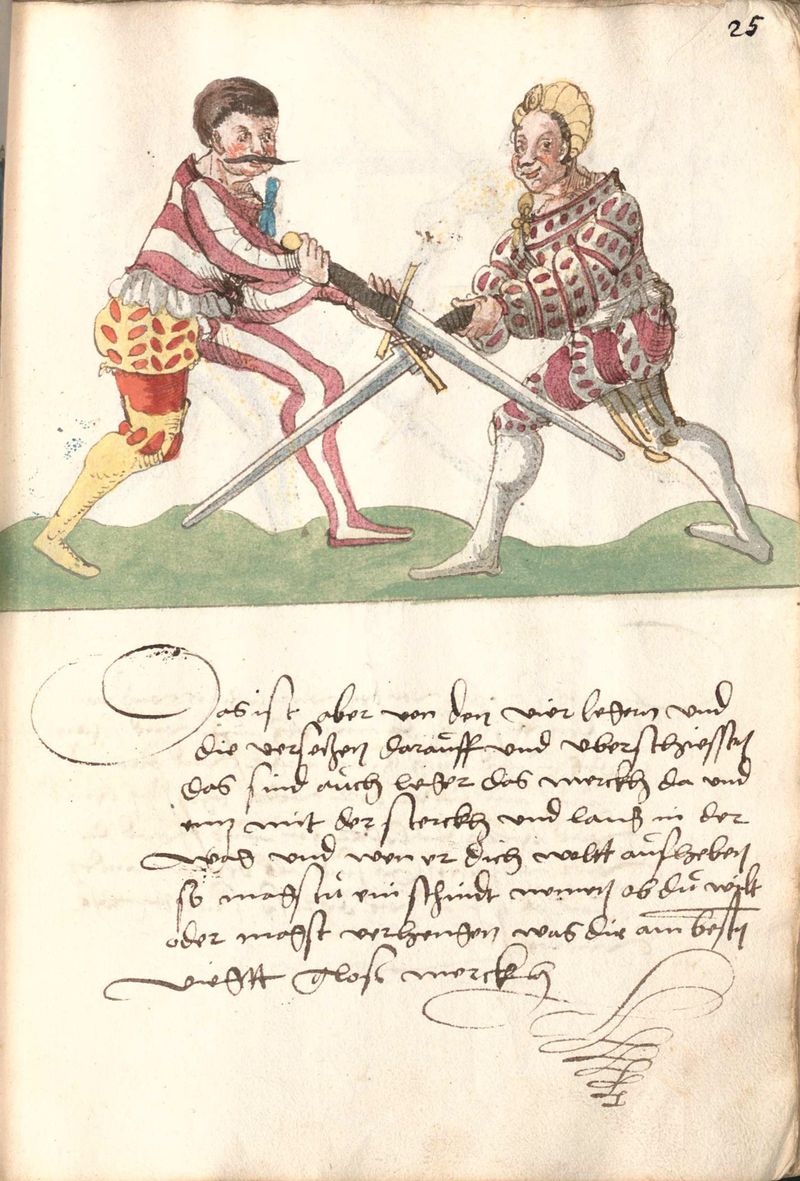 25
Das ist aber von den vier legern vnd
die versetzen darauff vnd vberschiessen
das sind auch leger das merckh da vnd
mit der sterckh vnd lang in der
wag vnd wen er dich wolt aufheben
so magstu ein schnidt nemen ob du wilt
oder magst verhengen was die am besten
fiegtt glosß merckh